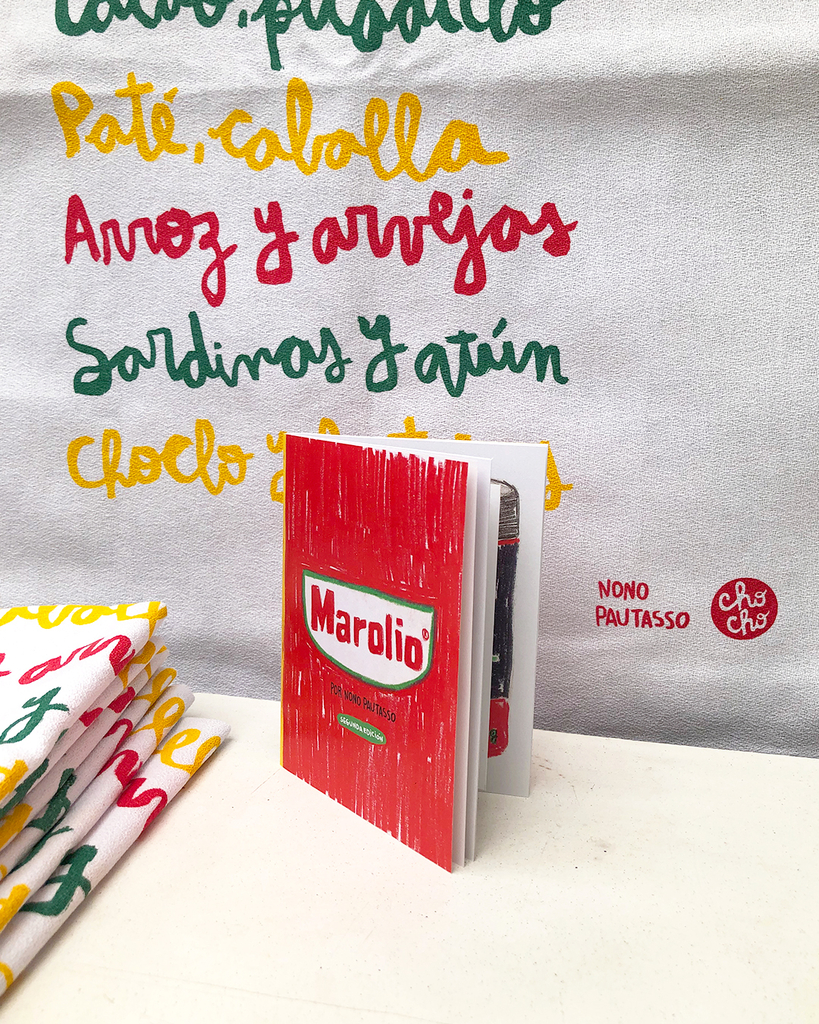 Paté, caballa
Arroz y arvejas
Sardinas y atún
Choclo y
NONO
PAUTASSO
cho
cho
Marolio®
POR NONO PAUTASSO
SEGUNDA EDICIÓN